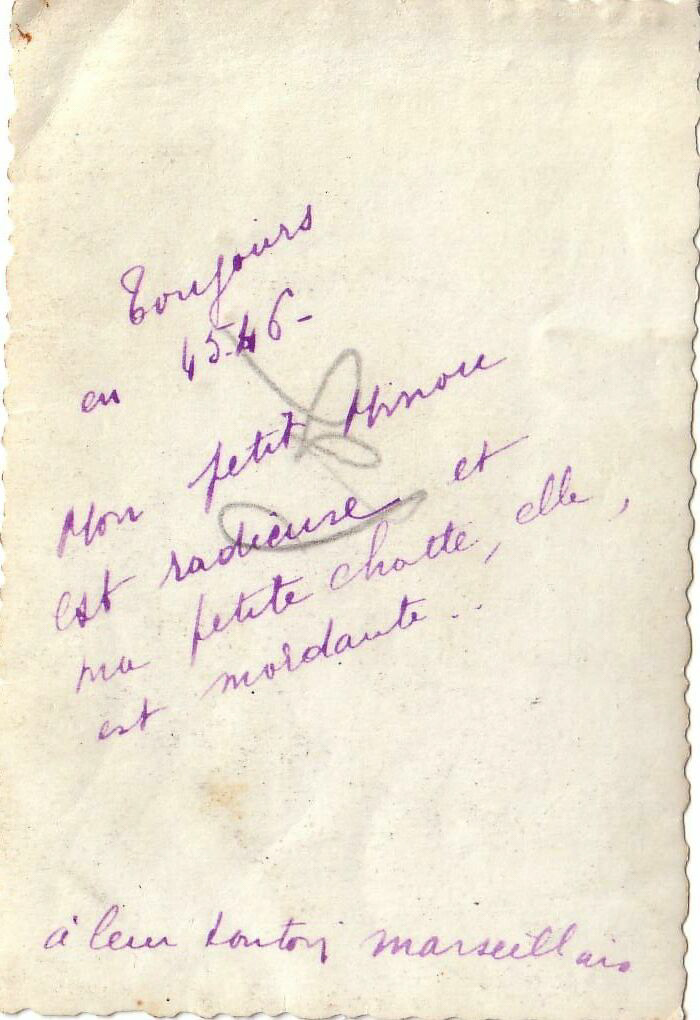 Toujours
en 45-46-
Mon petit Minou
est radieuse et
ma petite chatte, elle,
est mordante..
à leur tonton marseillais